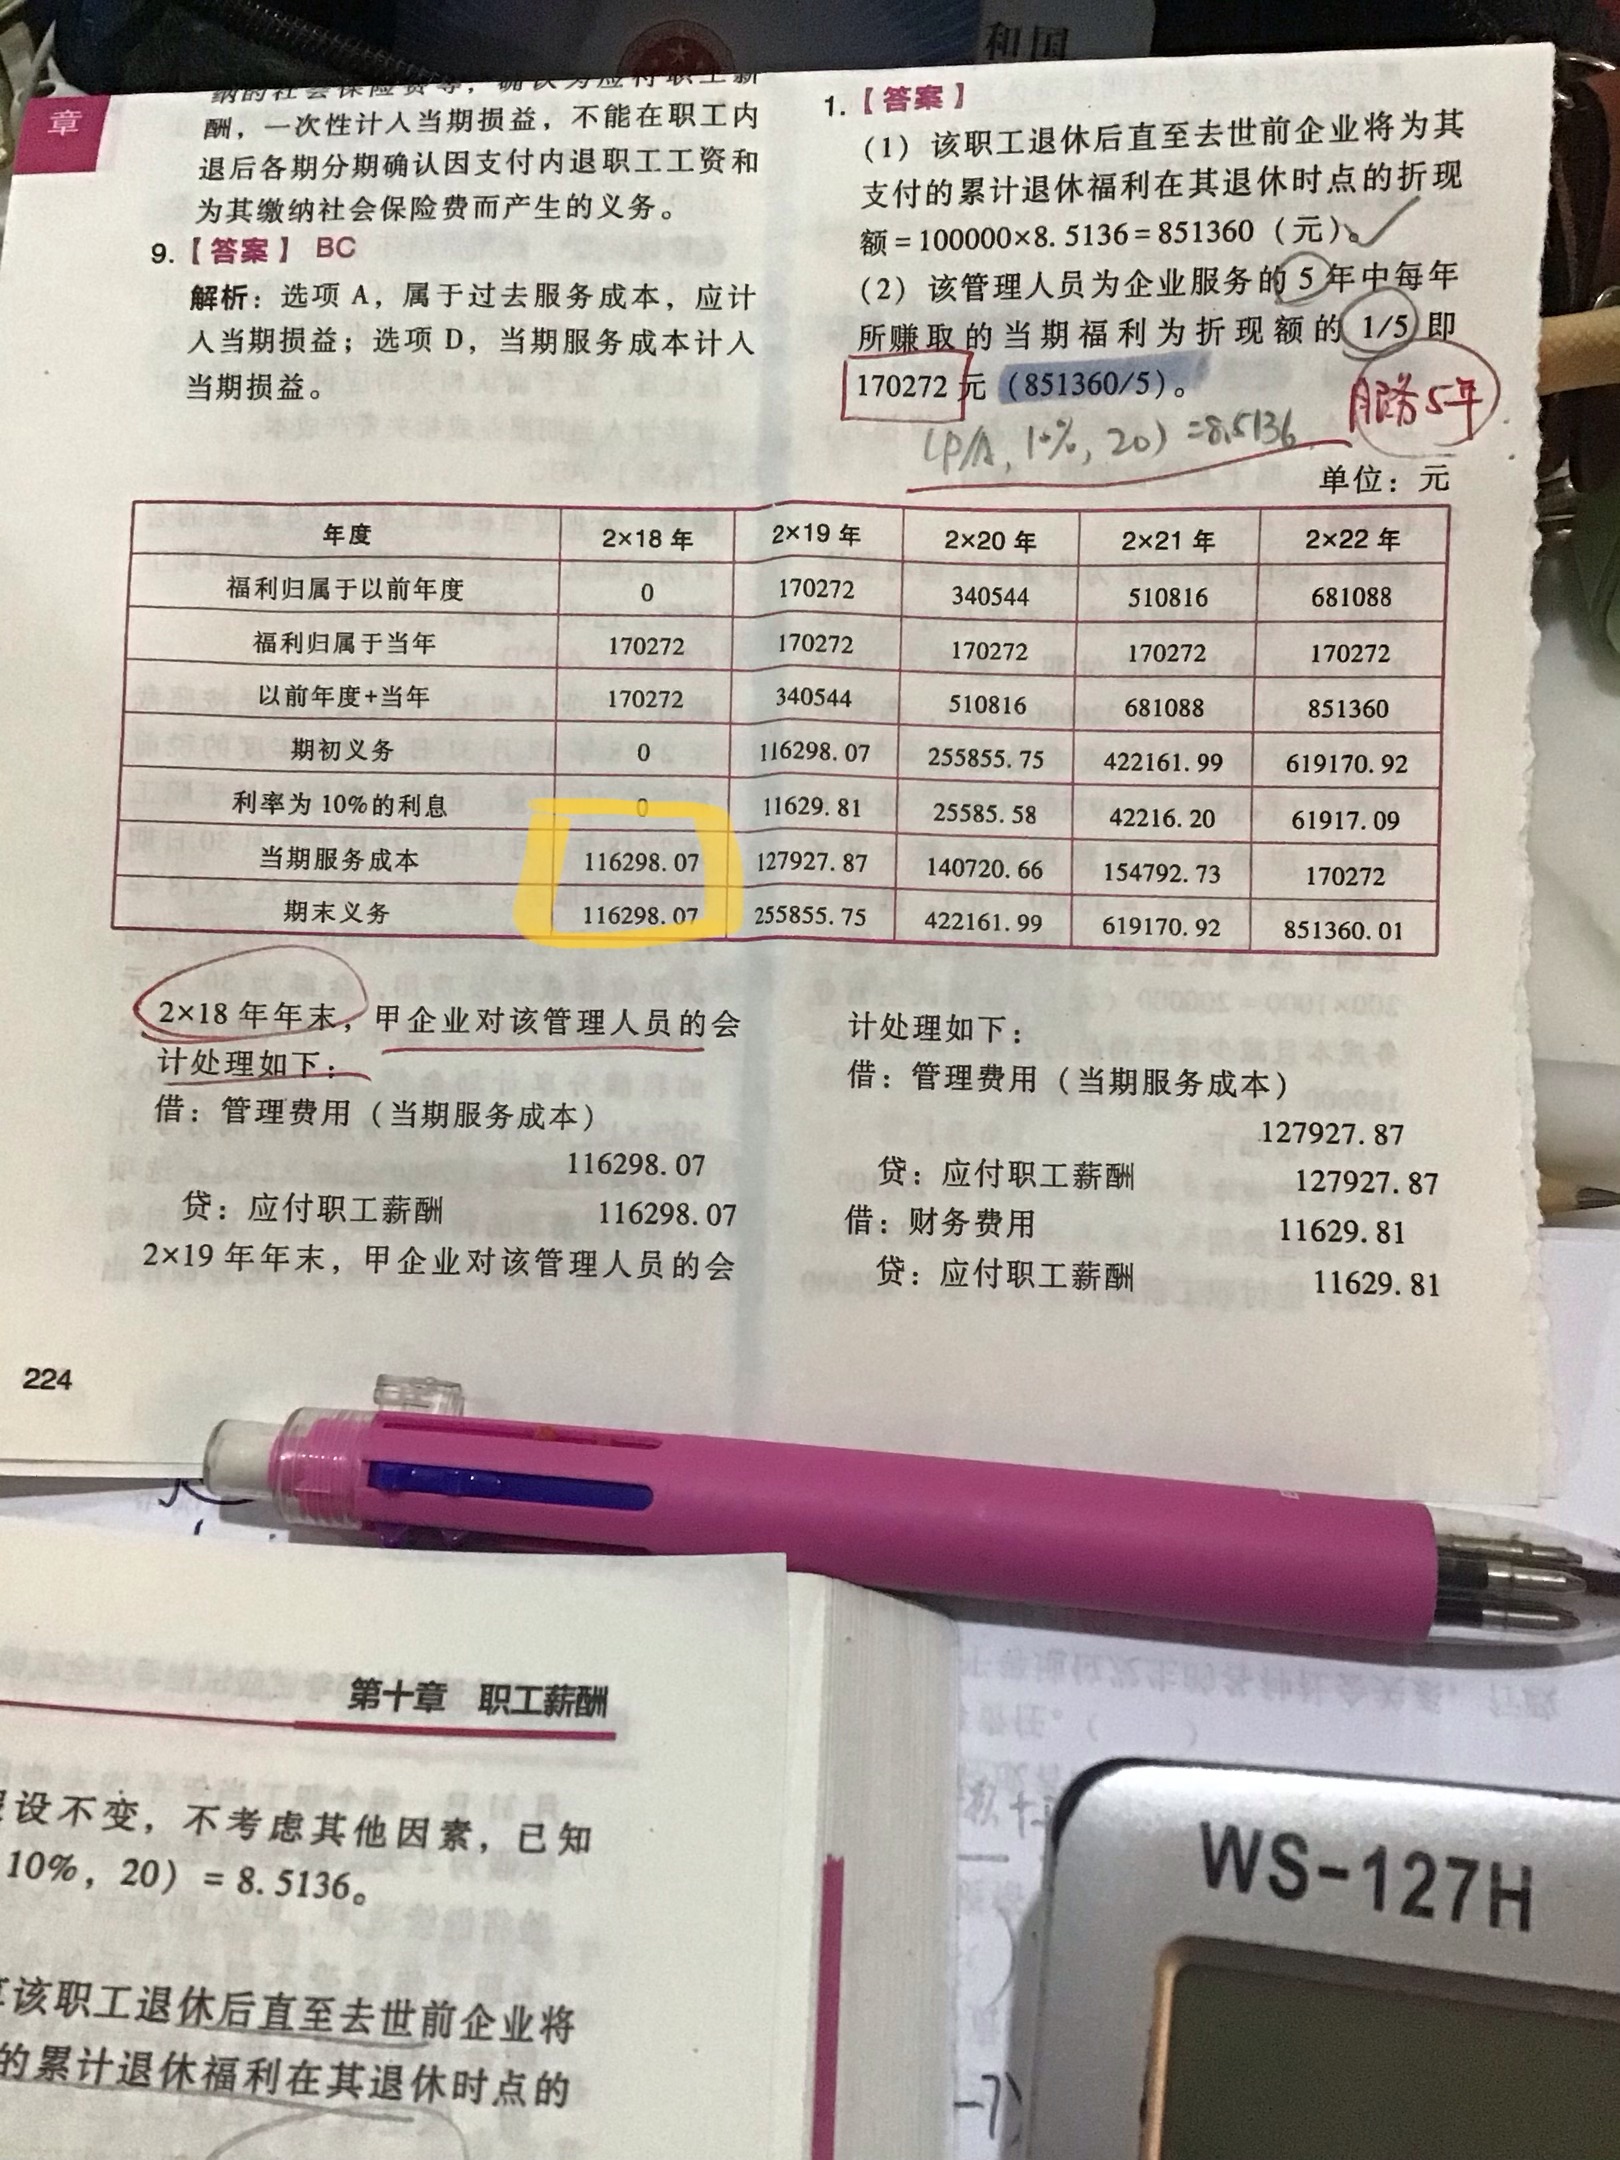 和国
章
纳的社会保险费等，确认为应付职工薪
酬，一次性计入当期损益，不能在职工内
退后各期分期确认因支付内退职工工资和
为其缴纳社会保险费而产生的义务。
9.【答案】BC
解析：选项 A，属于过去服务成本，应计
入当期损益；选项 D，当期服务成本计入
当期损益。
1.【答案】
（1）该职工退休后直至去世前企业将为其
支付的累计退休福利在其退休时点的折现
额＝100000×8.5136＝851360（元）。
（2）该管理人员为企业服务的 5 年中每年
所赚取的当期福利为折现额的 1/5 即
170272 元（851360/5）。
服务5年
(P/A, 10%, 20) =8.5136
单位：元
年度 2×18 年 2×19 年 2×20 年 2×21 年 2×22 年
福利归属于以前年度 0 170272 340544 510816 681088
福利归属于当年 170272 170272 170272 170272 170272
以前年度+当年 170272 340544 510816 681088 851360
期初义务 0 116298.07 255855.75 422161.99 619170.92
利率为 10%的利息 0 11629.81 25585.58 42216.20 61917.09
当期服务成本 116298.07 127927.87 140720.66 154792.73 170272
期末义务 116298.07 255855.75 422161.99 619170.92 851360.01
2×18 年年末，甲企业对该管理人员的会
计处理如下：
借：管理费用（当期服务成本）
116298.07
贷：应付职工薪酬 116298.07
2×19 年年末，甲企业对该管理人员的会
计处理如下：
借：管理费用（当期服务成本）
127927.87
贷：应付职工薪酬 127927.87
借：财务费用 11629.81
贷：应付职工薪酬 11629.81
224
第十章 职工薪酬
设不变，不考虑其他因素，已知
10%，20）＝8.5136。
该职工退休后直至去世前企业将
的累计退休福利在其退休时点的
WS-127H
-7)